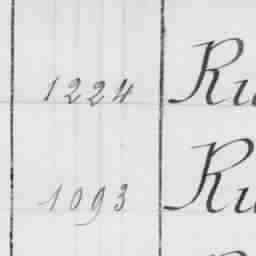 1224 Ru
1093 Ru